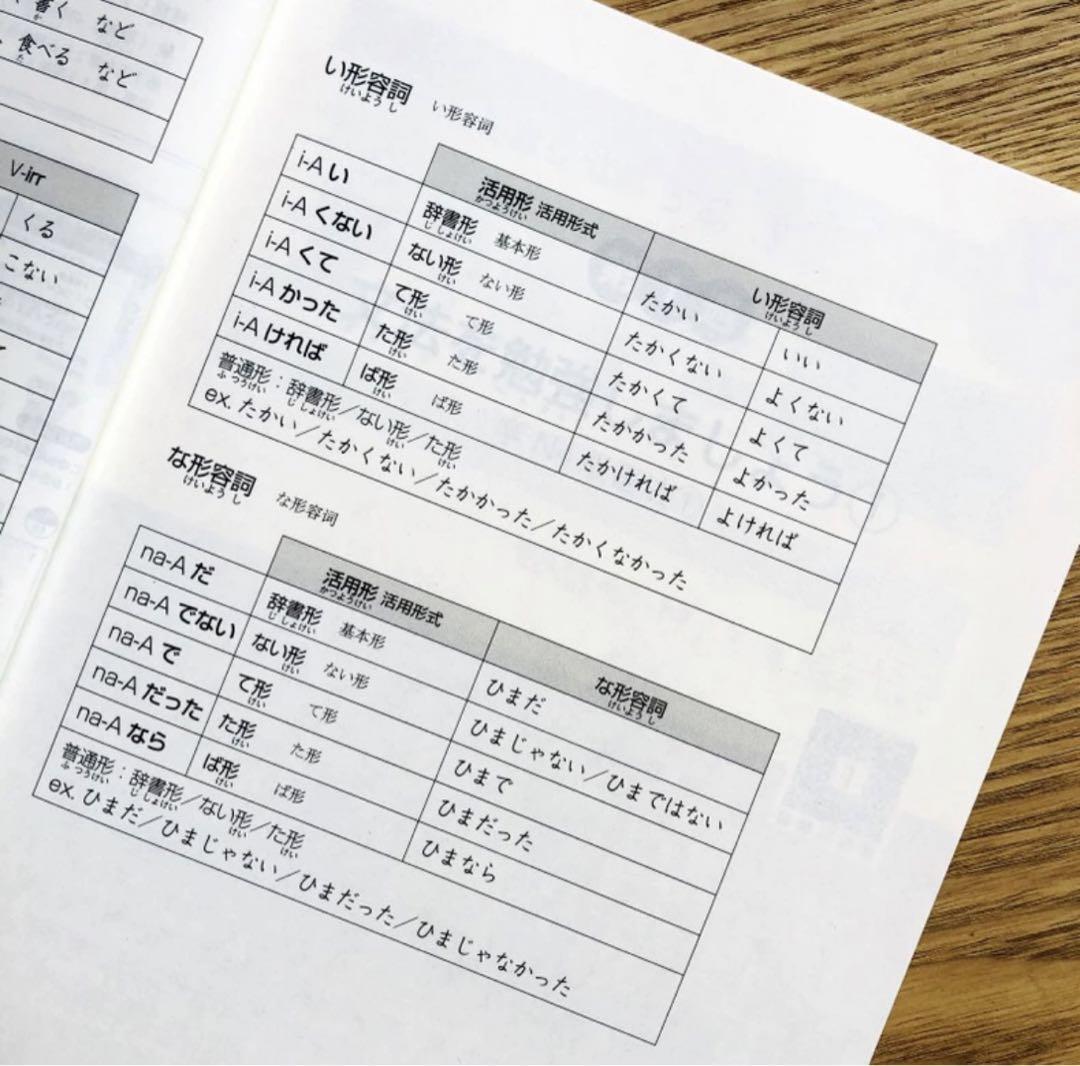 書く など
か
食べる など
た
V-irr
くる
こない
い形容詞 い形容词
けいようし
活用形 活用形式 い形容詞
かつようけい けいようし
i-A い 辞書形 基本形 たかい いい
じしょけい
i-A くない ない形 ない形 たかくない よくない
けい
i-A くて て形 て形 たかくて よくて
けい
i-A かった た形 た形 たかかった よかった
けい
i-A ければ ば形 ば形 たかければ よければ
けい
普通形：辞書形／ない形／た形
ふつうけい じしょけい けい けい
ex. たかい／たかくない／たかかった／たかくなかった
な形容詞 な形容词
けいようし
活用形 活用形式 な形容詞
かつようけい けいようし
na-A だ 辞書形 基本形 ひまだ
じしょけい
na-A でない ない形 ない形 ひまじゃない／ひまではない
けい
na-A で て形 て形 ひまで
けい
na-A だった た形 た形 ひまだった
けい
na-A なら ば形 ば形 ひまなら
けい
普通形：辞書形／ない形／た形
ふつうけい じしょけい けい けい
ex. ひまだ／ひまじゃない／ひまだった／ひまじゃなかった